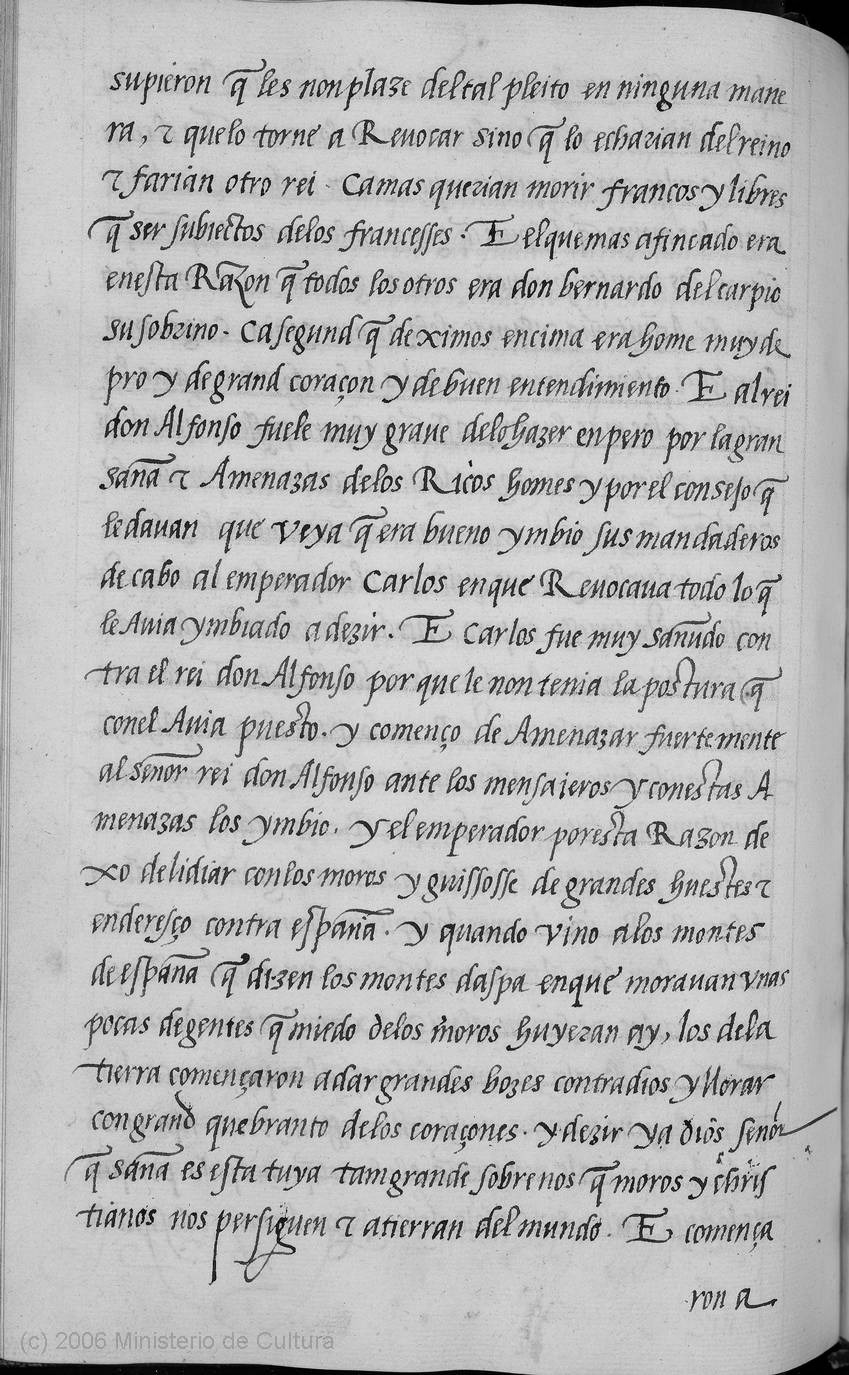 supieron q̃ les non plaze del tal pleito en ninguna mane
ra, ⁊ que lo torne a Reuocar sino q̃ lo echarian del reino
⁊ farian otro rei. Ca mas querian morir francos y libres
q̃ ser subiectos delos francesses. E el que mas afincado era
en esta Razon q̃ todos los otros era don bernardo del carpio
su sobrino. Ca segund q̃ deximos encima era home muy de
pro y de grand coraçon y de buen entendimiento. E al rei
don Alfonso fuele muy graue delo hazer enpero por la gran
saña ⁊ Amenazas delos Ricos homes y por el consejo q̃
le dauan que veya q̃ era bueno ymbio sus mandaderos
de cabo al emperador Carlos en que Reuocaua todo lo q̃
le Auia ymbiado a dezir. E Carlos fue muy sañudo con
tra el rei don Alfonso por que le non tenia la postura q̃
con el Auia puesto. y començo de Amenazar fuertemente
al señor rei don Alfonso ante los mensajeros y con estas A
menazas los ymbio. y el emperador por esta Razon de
xo de lidiar con los moros y guissosse de grandes huestes ⁊
enderesço contra españa. y quando vino alos montes
de españa q̃ dizen los montes daspa en que morauan vnas
pocas de gentes q̃ miedo delos moros huyeran ay, los de la
tierra començaron a dar grandes bozes contra dios y llorar
con grand quebranto delos coraçones. y dezir ya dios señor
q̃ saña es esta tuya tam grande sobre nos q̃ moros y chris
tianos nos persiguen ⁊ atierran del mundo. E comença
ron a
(c) 2006 Ministerio de Cultura